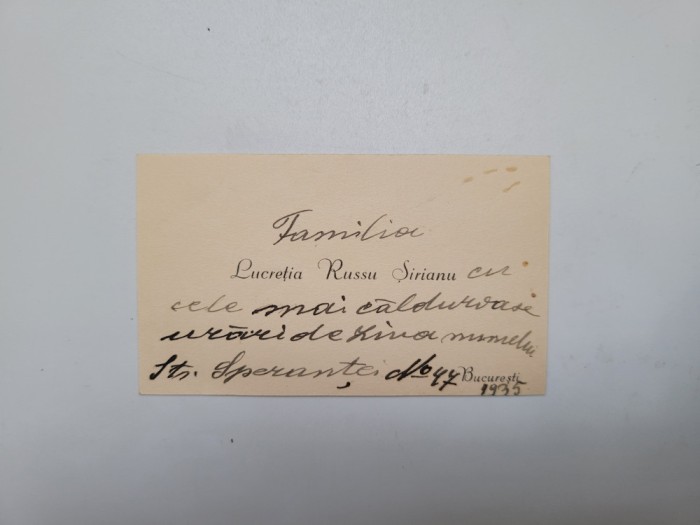 Familia
Lucreția Russu Șirianu cu
cele mai călduroase
urări de ziua numelui
Str. Speranței No 47 București
1935